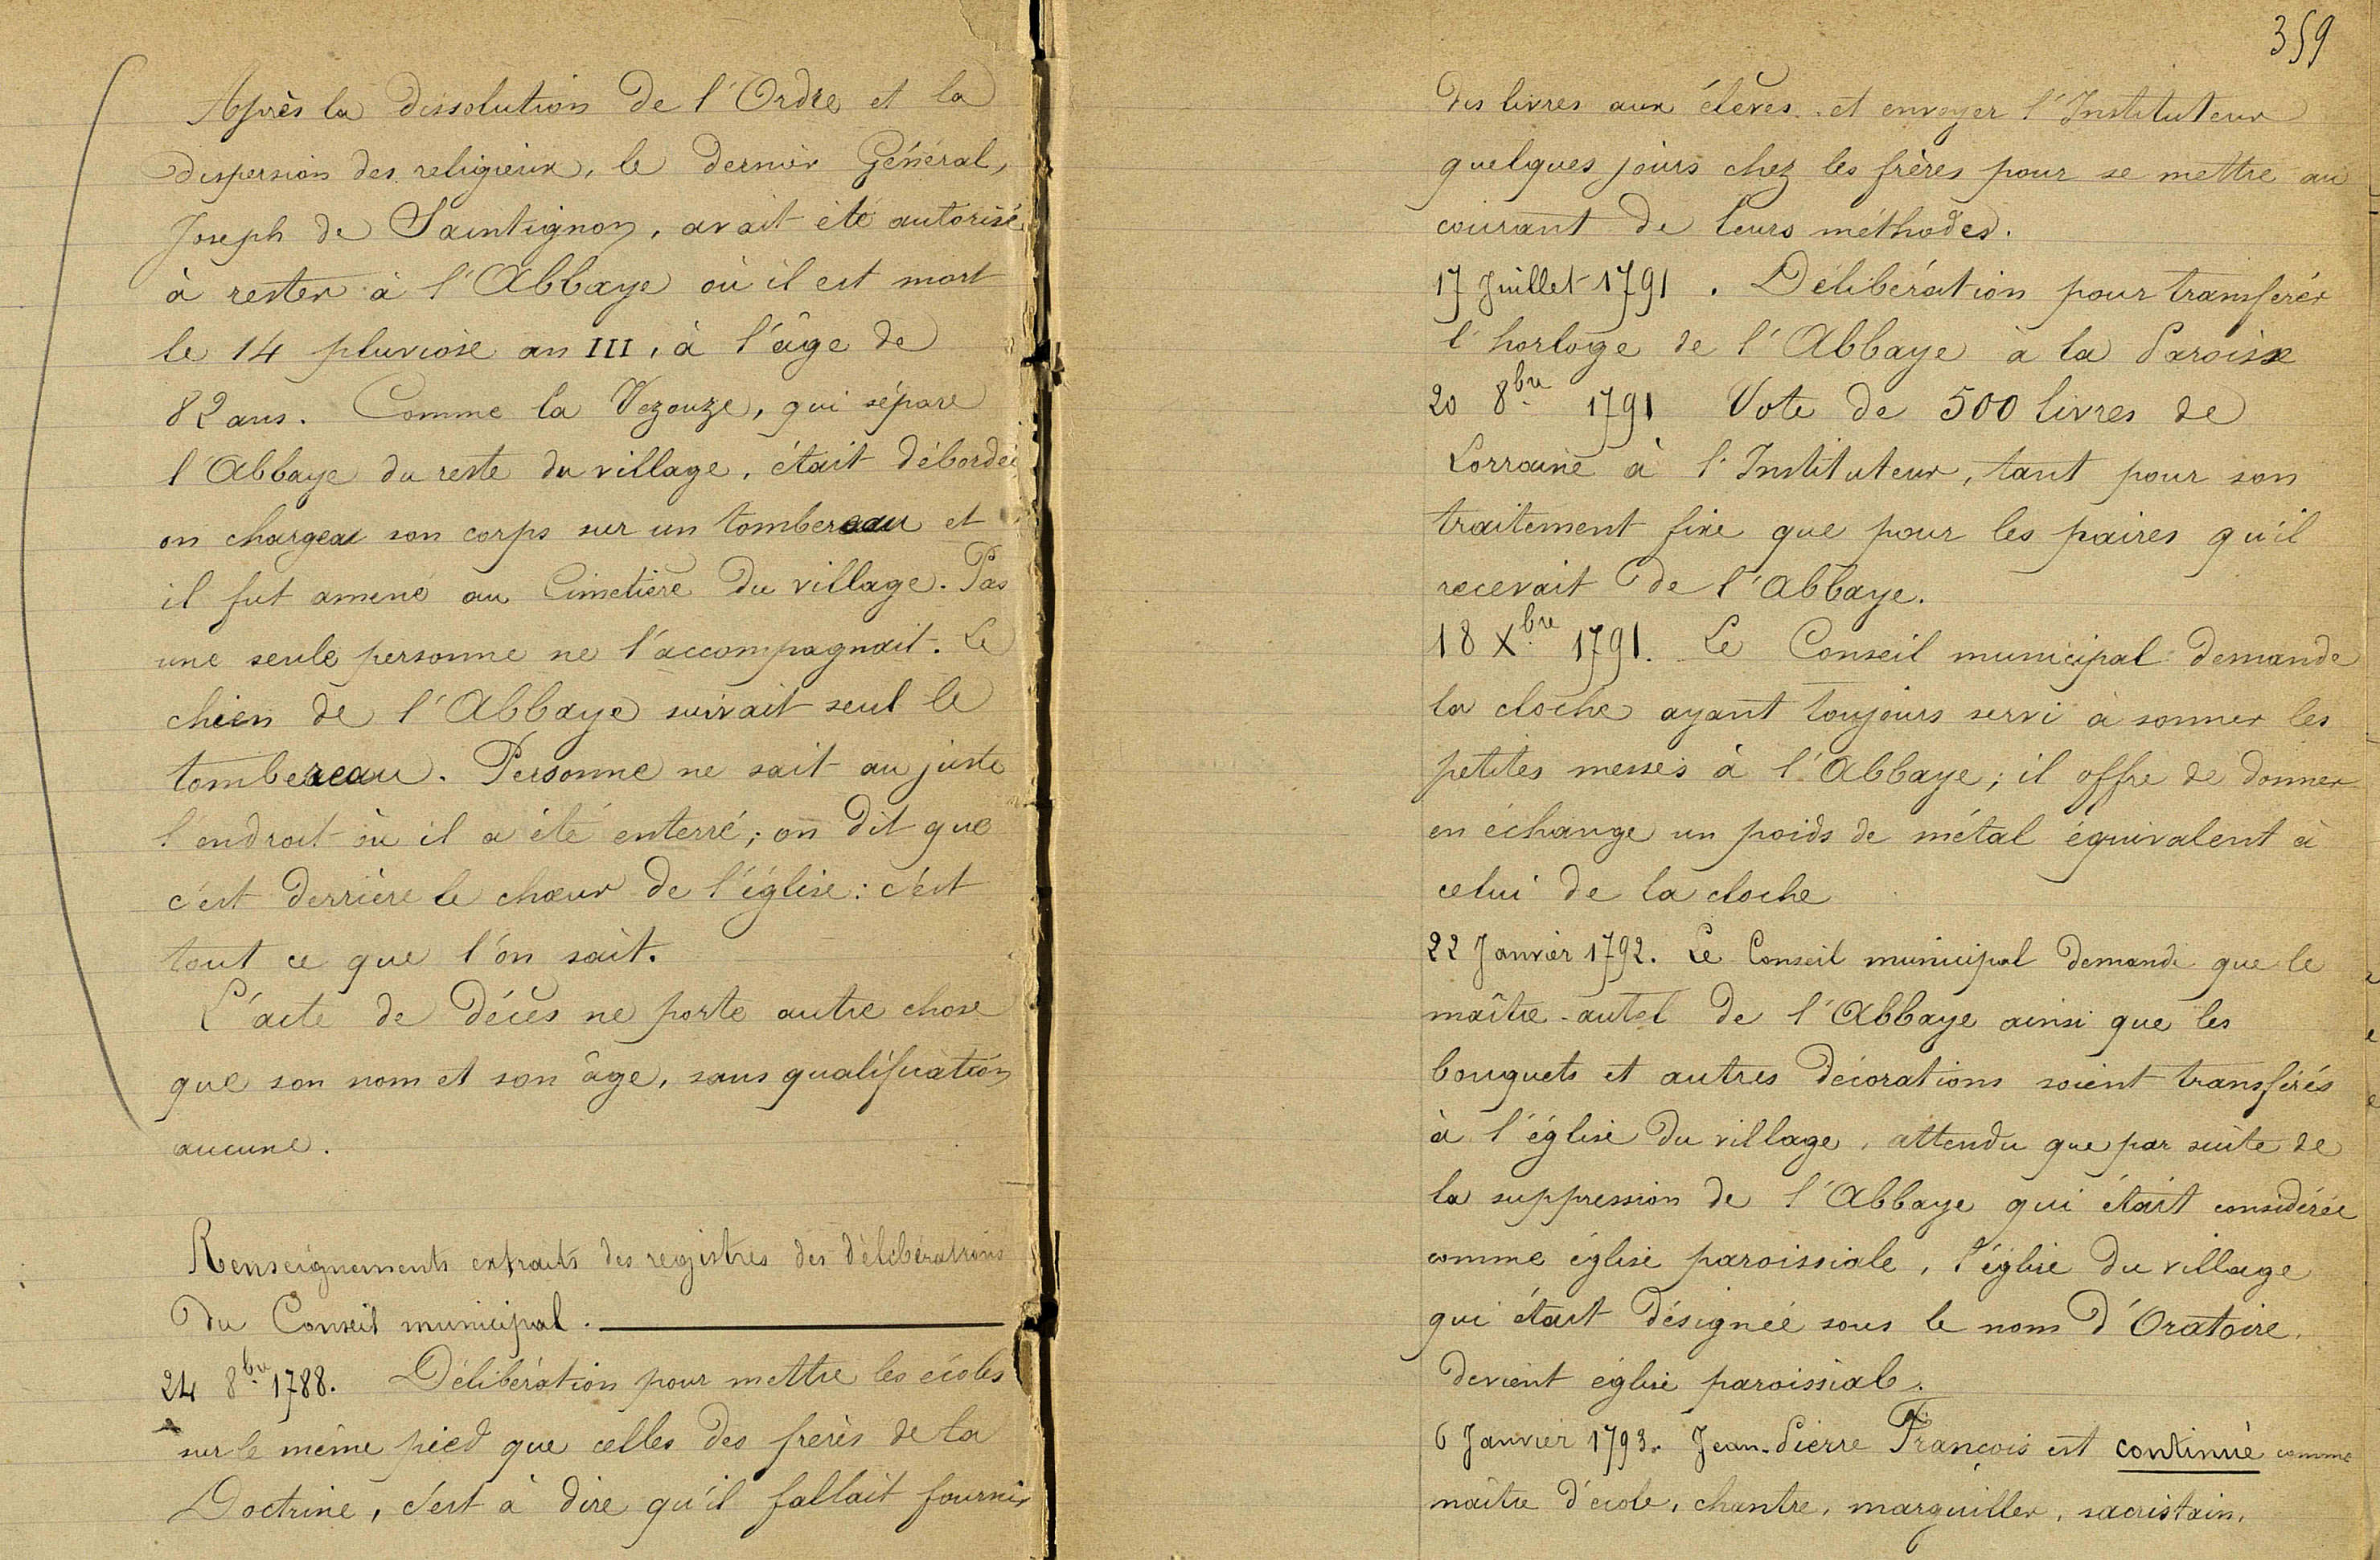 Après la dissolution de l'Ordre et la
dispersion des religieux, le dernier Général,
Joseph de Saintignon, avait été autorisé
à rester à l'Abbaye où il est mort
le 14 pluviose an III, à l'âge de
82 ans. Comme la Vezouze, qui sépare
l'Abbaye du reste du village, était débordée
on chargea son corps sur un tombereau et
il fut amené au Cimetière du village. Pas
une seule personne ne l'accompagnait. Le
chien de l'Abbaye suivait seul le
tombereau. Personne ne sait au juste
l'endroit où il a été enterré; on dit que
c'est derrière le chœur de l'église: c'est
tout ce que l'on sait.
L'acte de décès ne porte autre chose
que son nom et son âge, sans qualification
aucune.
Renseignements extraits des registres des délibérations
du Conseil municipal.
24 8bre 1788. Délibération pour mettre les écoles
sur le même pied que celles des frères de la
Doctrine, c'est à dire qu'il fallait fournir
359
des livres aux élèves et envoyer l'Instituteur
quelques jours chez les frères pour se mettre au
courant de leurs méthodes.
17 Juillet 1791. Délibération pour transférer
l'horloge de l'Abbaye à la Paroisse
20 8bre 1791 Vote de 500 livres de
Lorraine à l'Instituteur, tant pour son
traitement fixe que pour les paires qu'il
recevait de l'Abbaye.
18 Xbre 1791. Le Conseil municipal demande
la cloche ayant toujours servi à sonner les
petites messes à l'Abbaye; il offre de donner
en échange un poids de métal équivalent à
celui de la cloche
22 Janvier 1792. Le Conseil municipal demande que le
maître-autel de l'Abbaye ainsi que les
bouquets et autres décorations soient transférés
à l'église du village, attendu que par suite de
la suppression de l'Abbaye qui était considérée
comme église paroissiale, l'église du village
qui était désignée sous le nom d'Oratoire,
devient église paroissiale.
6 Janvier 1793. Jean-Pierre François est continué comme
maître d'école, chantre, marguiller, sacristain,